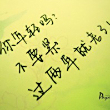 你年轻吗?
不要紧
过两年就老了!